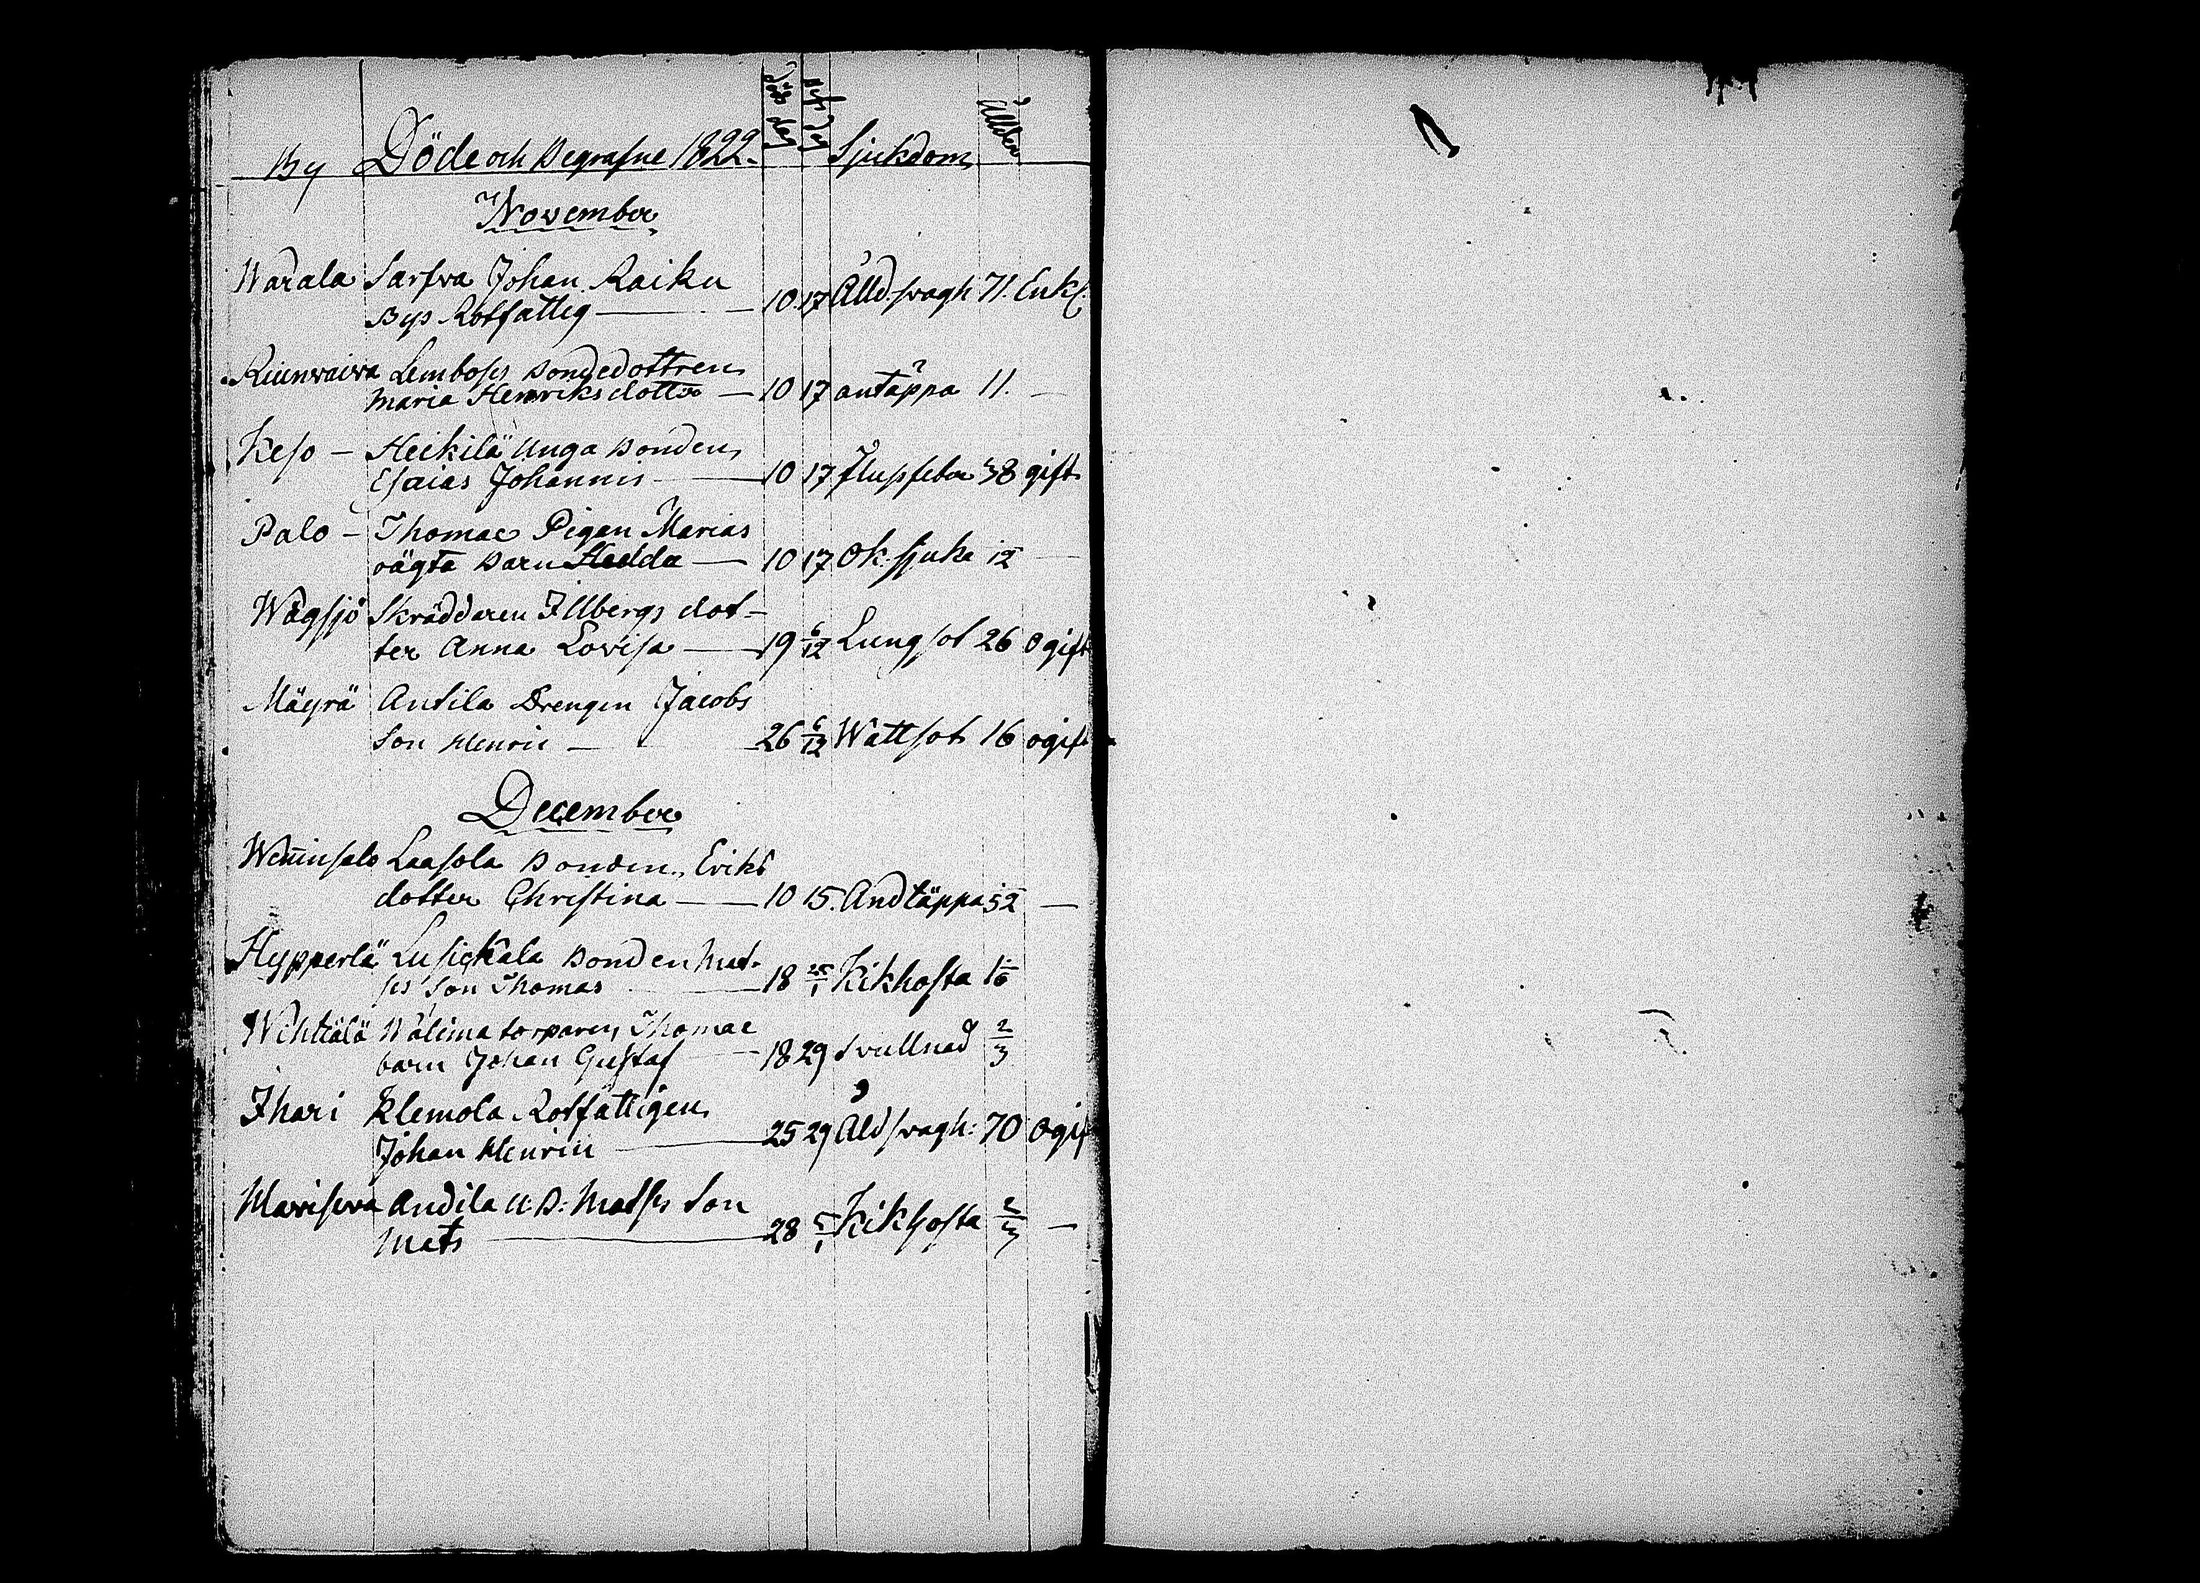 By Döde och Begrafne 1822. Döds dag Sjukdom Ålder
November
Warala Sarfva Johan Raiku
Bys Rotfattig 10 17 Ålld. svagh 71. Enkl.
Lemboss Bondedottren
Maria Henriksdotter 10 17 antäppa 11. —
Keso – Heikilä Unga Bonden
Esaias Johannis 10 17 flussfeber 38 gift
Palo – Thomae Pigan Marias
oägta Barn Hedda 10 17 Ok. sjuka 12 —
Wågsjö Skräddaren Illbergs dot-
ter Anna Lovisa 19 6/12 Lungsot 26 Ogift
Mäyrä Antila Drengen Jacobs
Son Henric 26 6/12 Wattsot 16 ogift
December
Weninsalo Laasola Bonden Eriks
dotter Christina 10 15. Andtäppa 52 —
Hypperlä Lusickala Bonden Mat-
ss Son Thomas 18 Kikhosta
Wihtiälä Wälima torparen Thomae
barn Johan Gustaf 18 29 Svullnad 2/3
Ihari Klemola Rotfattigen
Johan Henric 25 29 Åld svagh: 70 Ogif
Andila U: B: Matss Son
Mats 28 5/1 Kikhosta 2/3 —